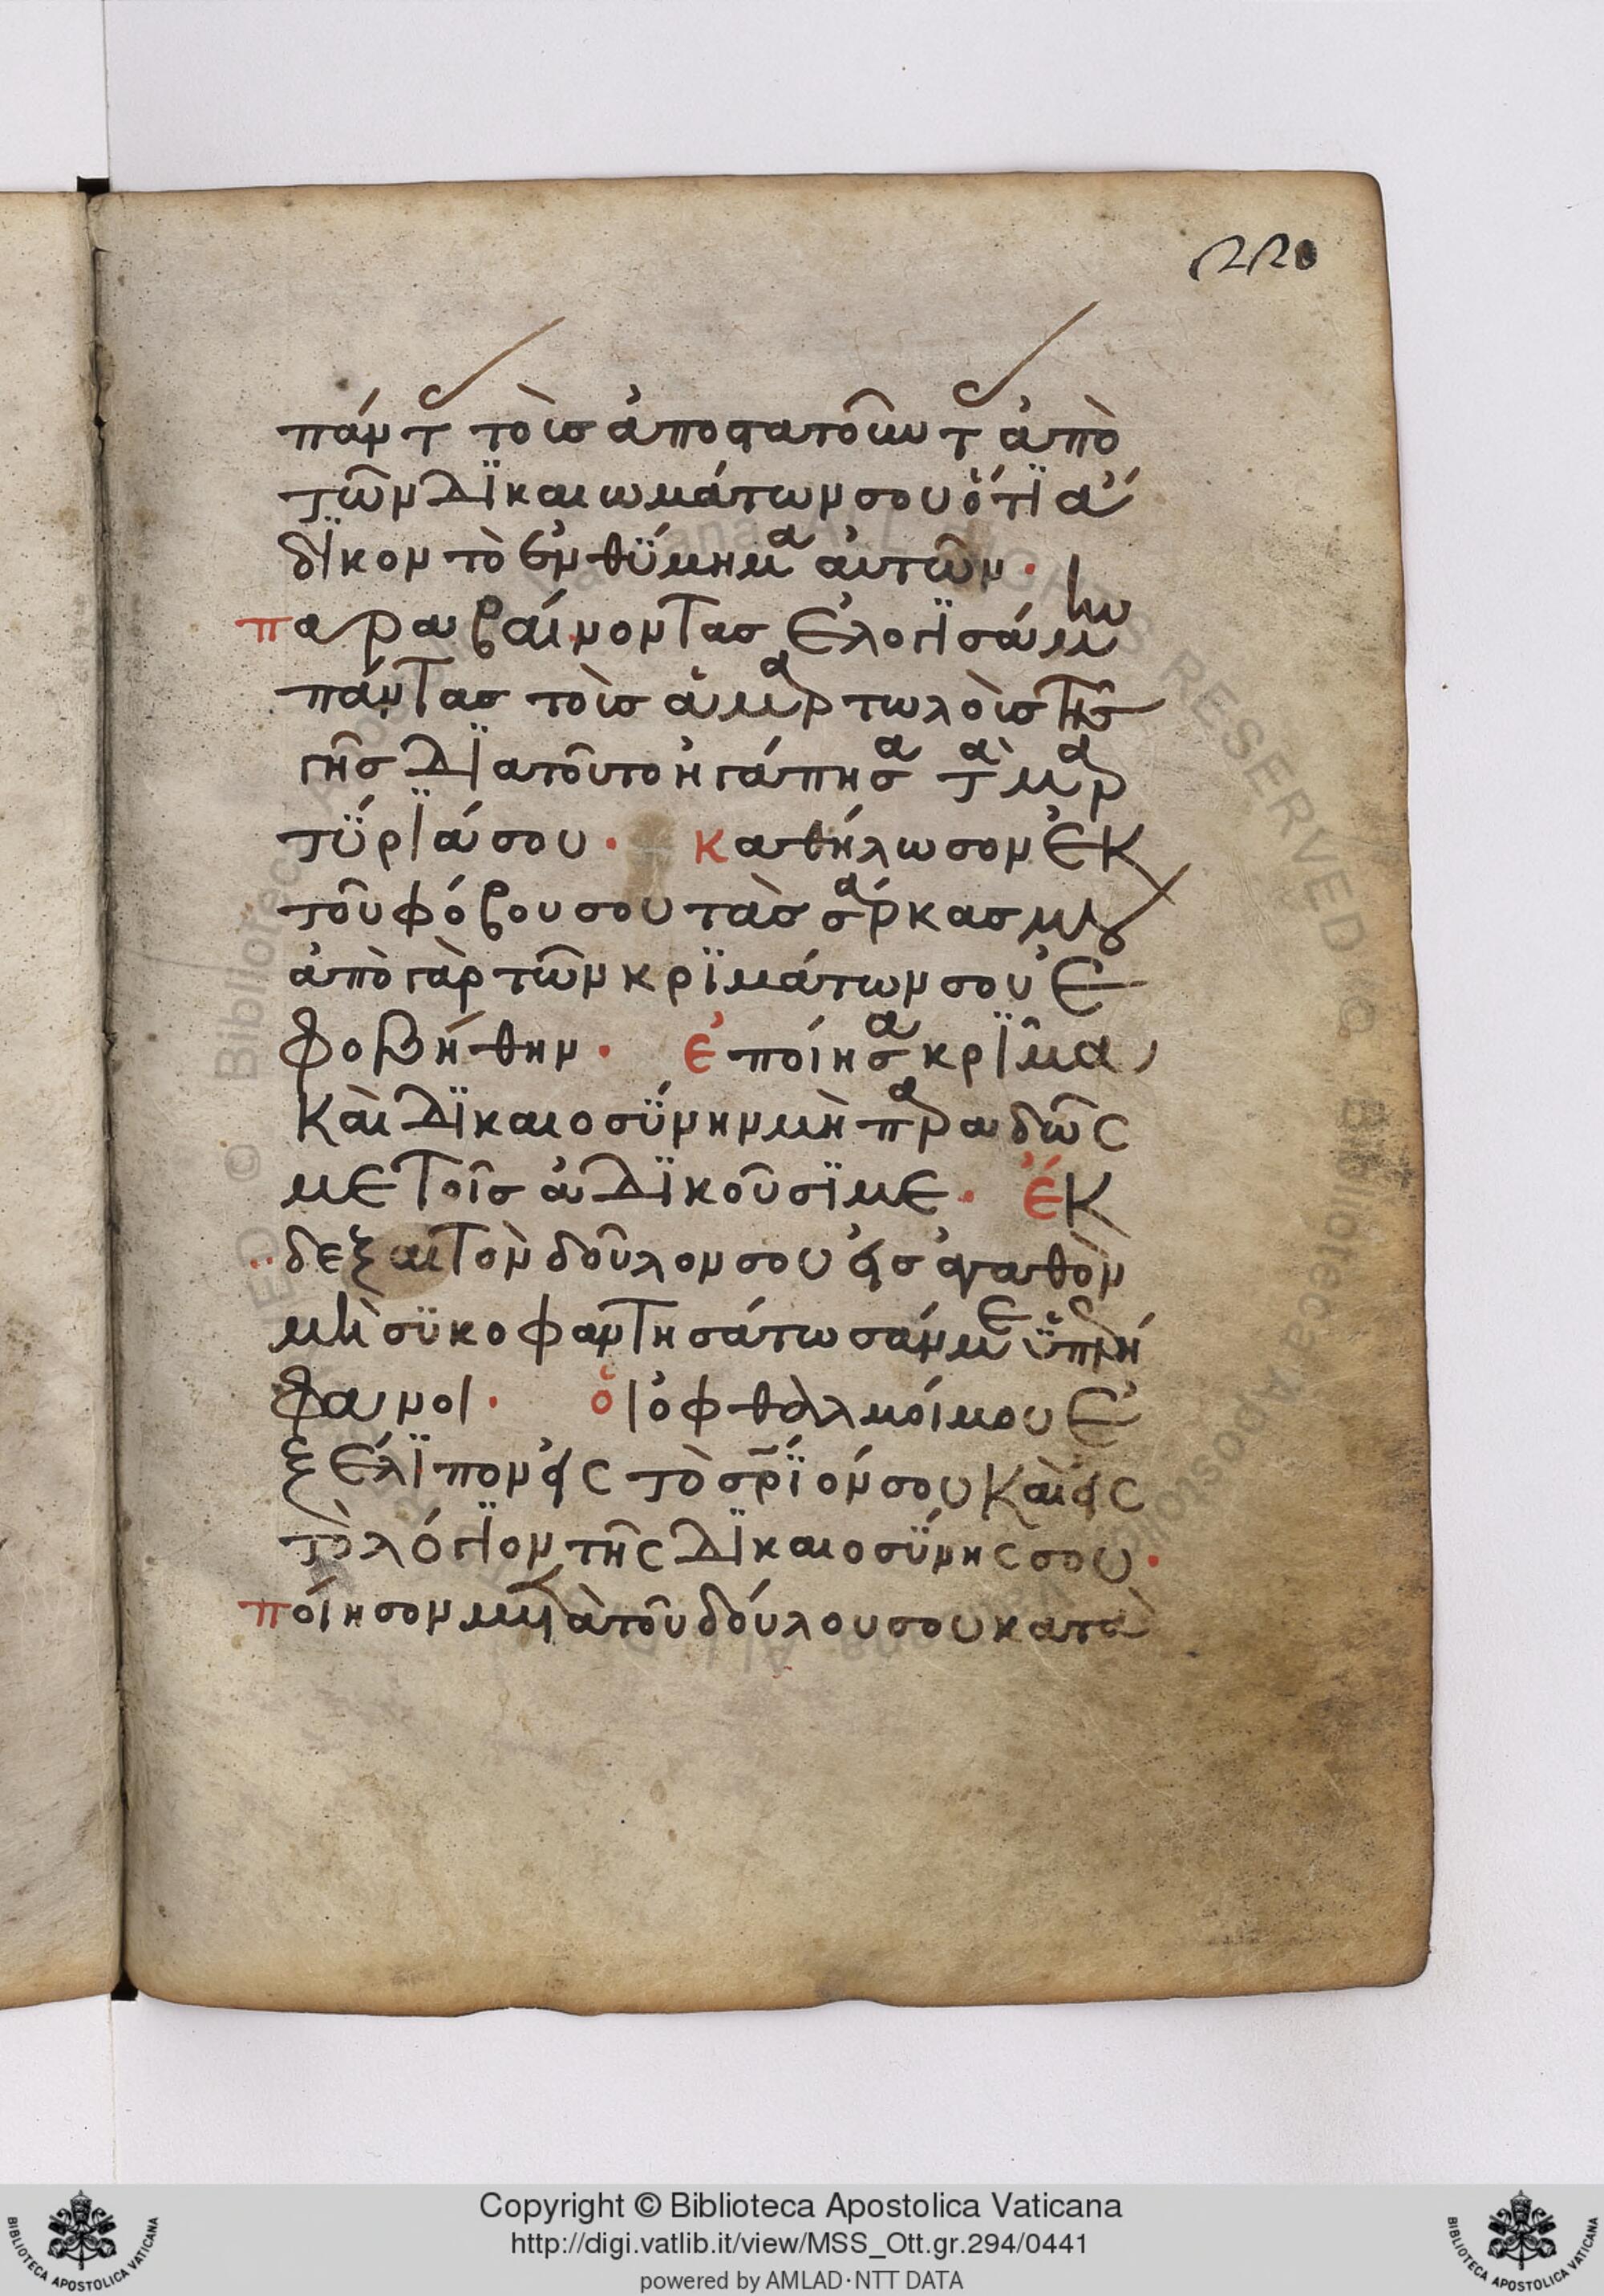 220
πάντ τοὺσ ἀποστατοῦντ ἀπὸ
τῶν δϊκαιωμάτων σου ὅτϊ ἄ
δϊκον τὸ ἐνθϋμημα ἀυτῶν·
παραβαίνοντασ ἐλογϊσάμην
πάντασ τοὺσ ἁμαρτωλοὺσ τῆσ
γῆσ δϊατοῦτο ἠγάπησα τὰ μαρ
τϋρϊά σου· καθήλωσον ἐκ
τοῦ φόβου σου τὰσ σάρκασ μου
ἀπὸ γὰρ τῶν κρϊμάτων σου ἐ
φοβήθην· ἐποίησα κρϊμα
καὶ δϊκαιοσϋνην μὴ παραδῶς
με τοῖσ ἀδϊκοῦσϊ με· ἔκ
δεξαι τὸν δοῦλον σου ἐισ ἀγαθὸν
μὴ συκοφαντησάτωσάν με ὑπερή
φανοι· ὁι ὀφθαλμοί μου ἐ
ξέλϊπον ἐις τὸ σρϊόν σου καὶ ἐις
τὸ λόγϊον τῆς δϊκαιοσϋνης σου·
ποίησον μετὰ τοῦ δούλου σου κατὰ
Copyright © Biblioteca Apostolica Vaticana
http://digi.vatlib.it/view/MSS_Ott.gr.294/0441
powered by AMLAD·NTT DATA
BIBLIOTECA APOSTOLICA VATICANA
BIBLIOTECA APOSTOLICA VATICANA